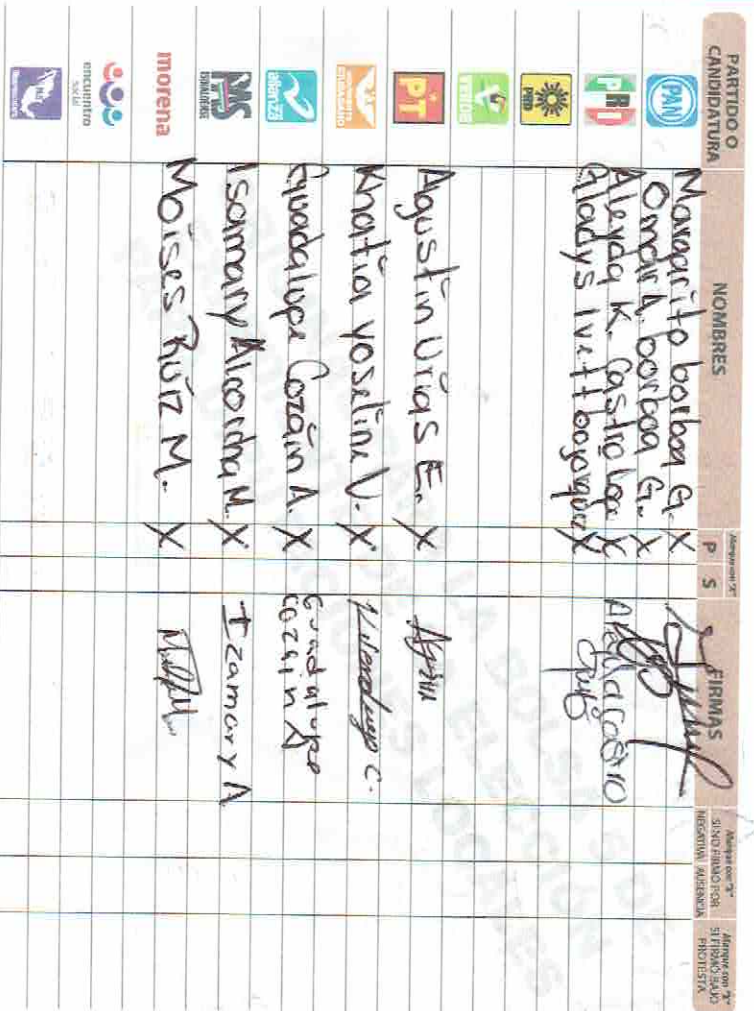 PARTIDO O CANDIDATURA
NOMBRES
Marque con "X"
P
S
FIRMAS
Marque con "X" SI NO FIRMÓ POR
NEGATIVA
AUSENCIA
Marque con "X" SI FIRMÓ BAJO PROTESTA
PAN
Margarito borboa G. X
Omar A. borboa G. X
PRI
Aleyda K. Castro X
Aleyda Castro
Gladys Ivett bojorquez X
PRD
VERDE
PT
Agustin Urias E. X
Khatia yoseline V. X
alianza
Guadalupe Cozain A. X
Guadalupe
Cozain A
PAS
SINALOENSE
Isamary M. X
Izamary A
morena
Moises Ruiz M. X
encuentro
social